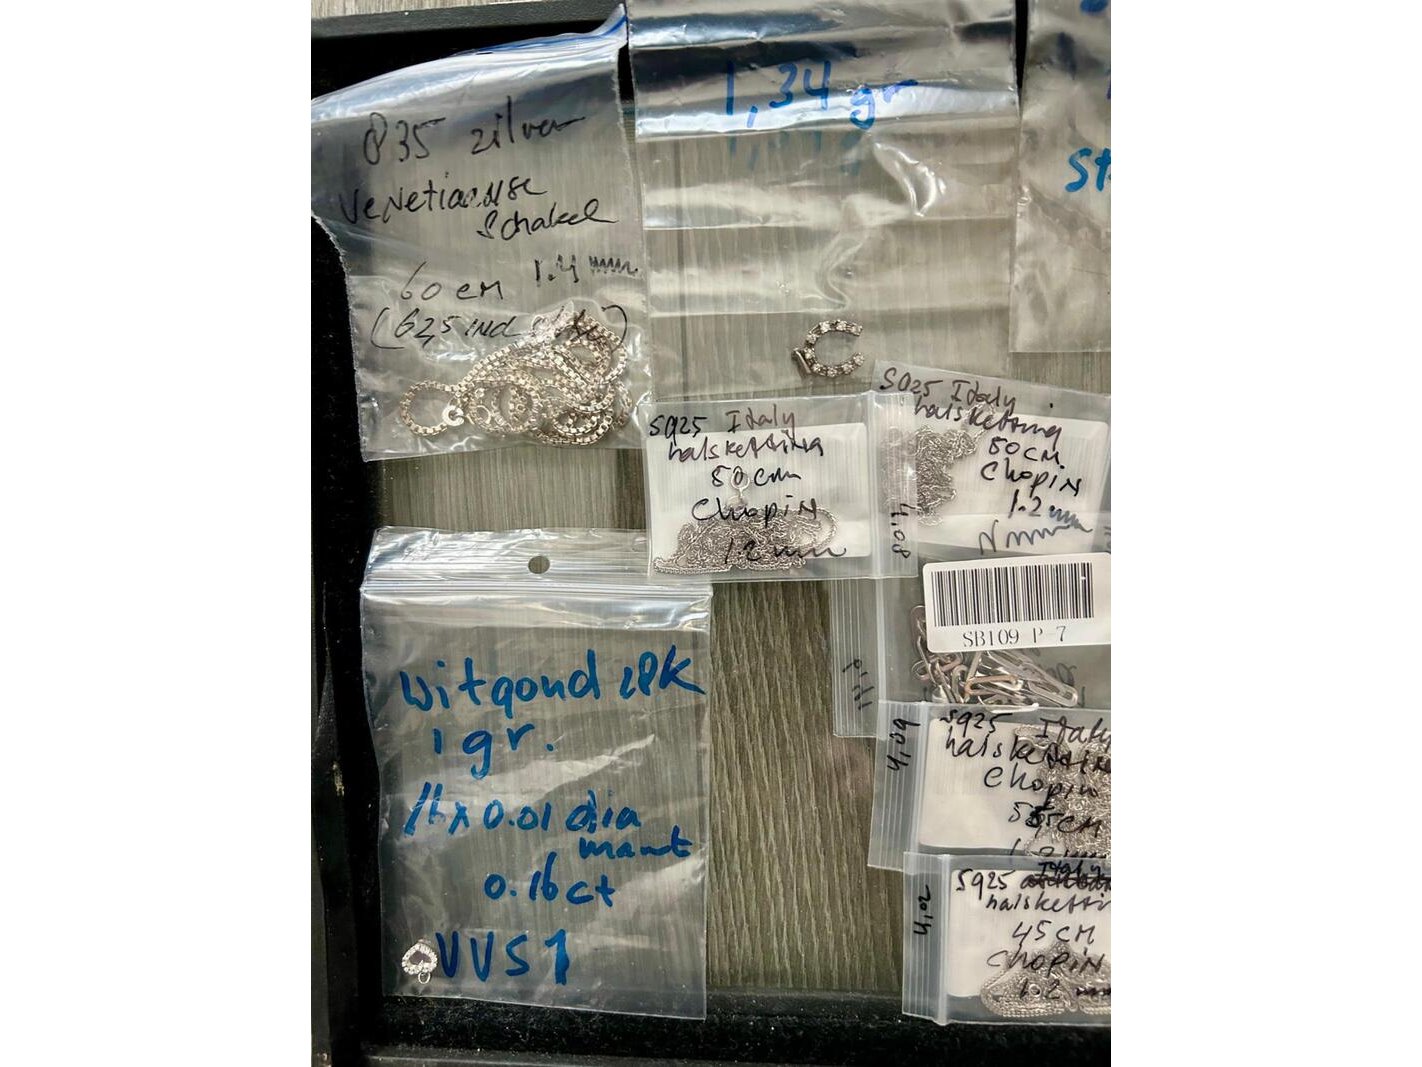 835 zilver
Venetiaanse
Schakel
60 cm 1.4 mm
(62,5 incl
1,34 gr
St
S925 Italy
halsketting
50cm
Chopin
1.2 mm
S925 Italy
halsketting
50cm
Chopin
1.2 mm
4,08
SB109 P-7
witgoud 18K
1 gr.
16 x 0.01 dia
mant
0.16 ct
VVS1
4,09
S925 Italy
halsketting
Chopin
55cm
4,02
S925 Italy
halsketti
45 cm
Chopin
1.2 mm